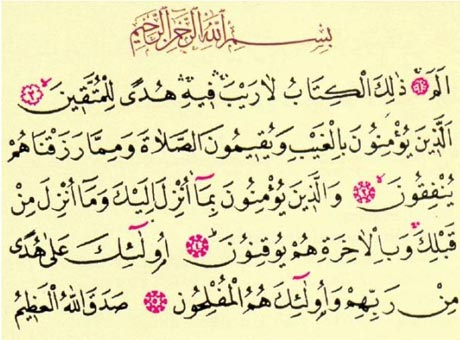 بِسْــمِ اللّٰهِ الرَّحْمٰنِ الرَّحٖيمِ
الٓمٓ ﴿١﴾ ذٰلِكَ الْكِتَابُ لَا رَيْبَ ۛ فٖيهِ ۛ هُدًى لِلْمُتَّقٖينَۙ ﴿٢﴾
اَلَّذٖينَ يُؤْمِنُونَ بِالْغَيْبِ وَيُقٖيمُونَ الصَّلَاةَ وَمِمَّا رَزَقْنَاهُمْ
يُنْفِقُونَۙ ﴿٣﴾ وَالَّذٖينَ يُؤْمِنُونَ بِمَٓا اُنْزِلَ اِلَيْكَ وَمَٓا اُنْزِلَ مِنْ
قَبْلِكَۚ وَبِالْاٰخِرَةِ هُمْ يُوقِنُونَؕ ﴿٤﴾ اُو۬لٰٓئِكَ عَلٰى هُدًى
مِنْ رَبِّهِمْ وَاُو۬لٰٓئِكَ هُمُ الْمُفْلِحُونَ ﴿٥﴾ صَدَقَ اللّٰهُ الْعَظٖيمُ